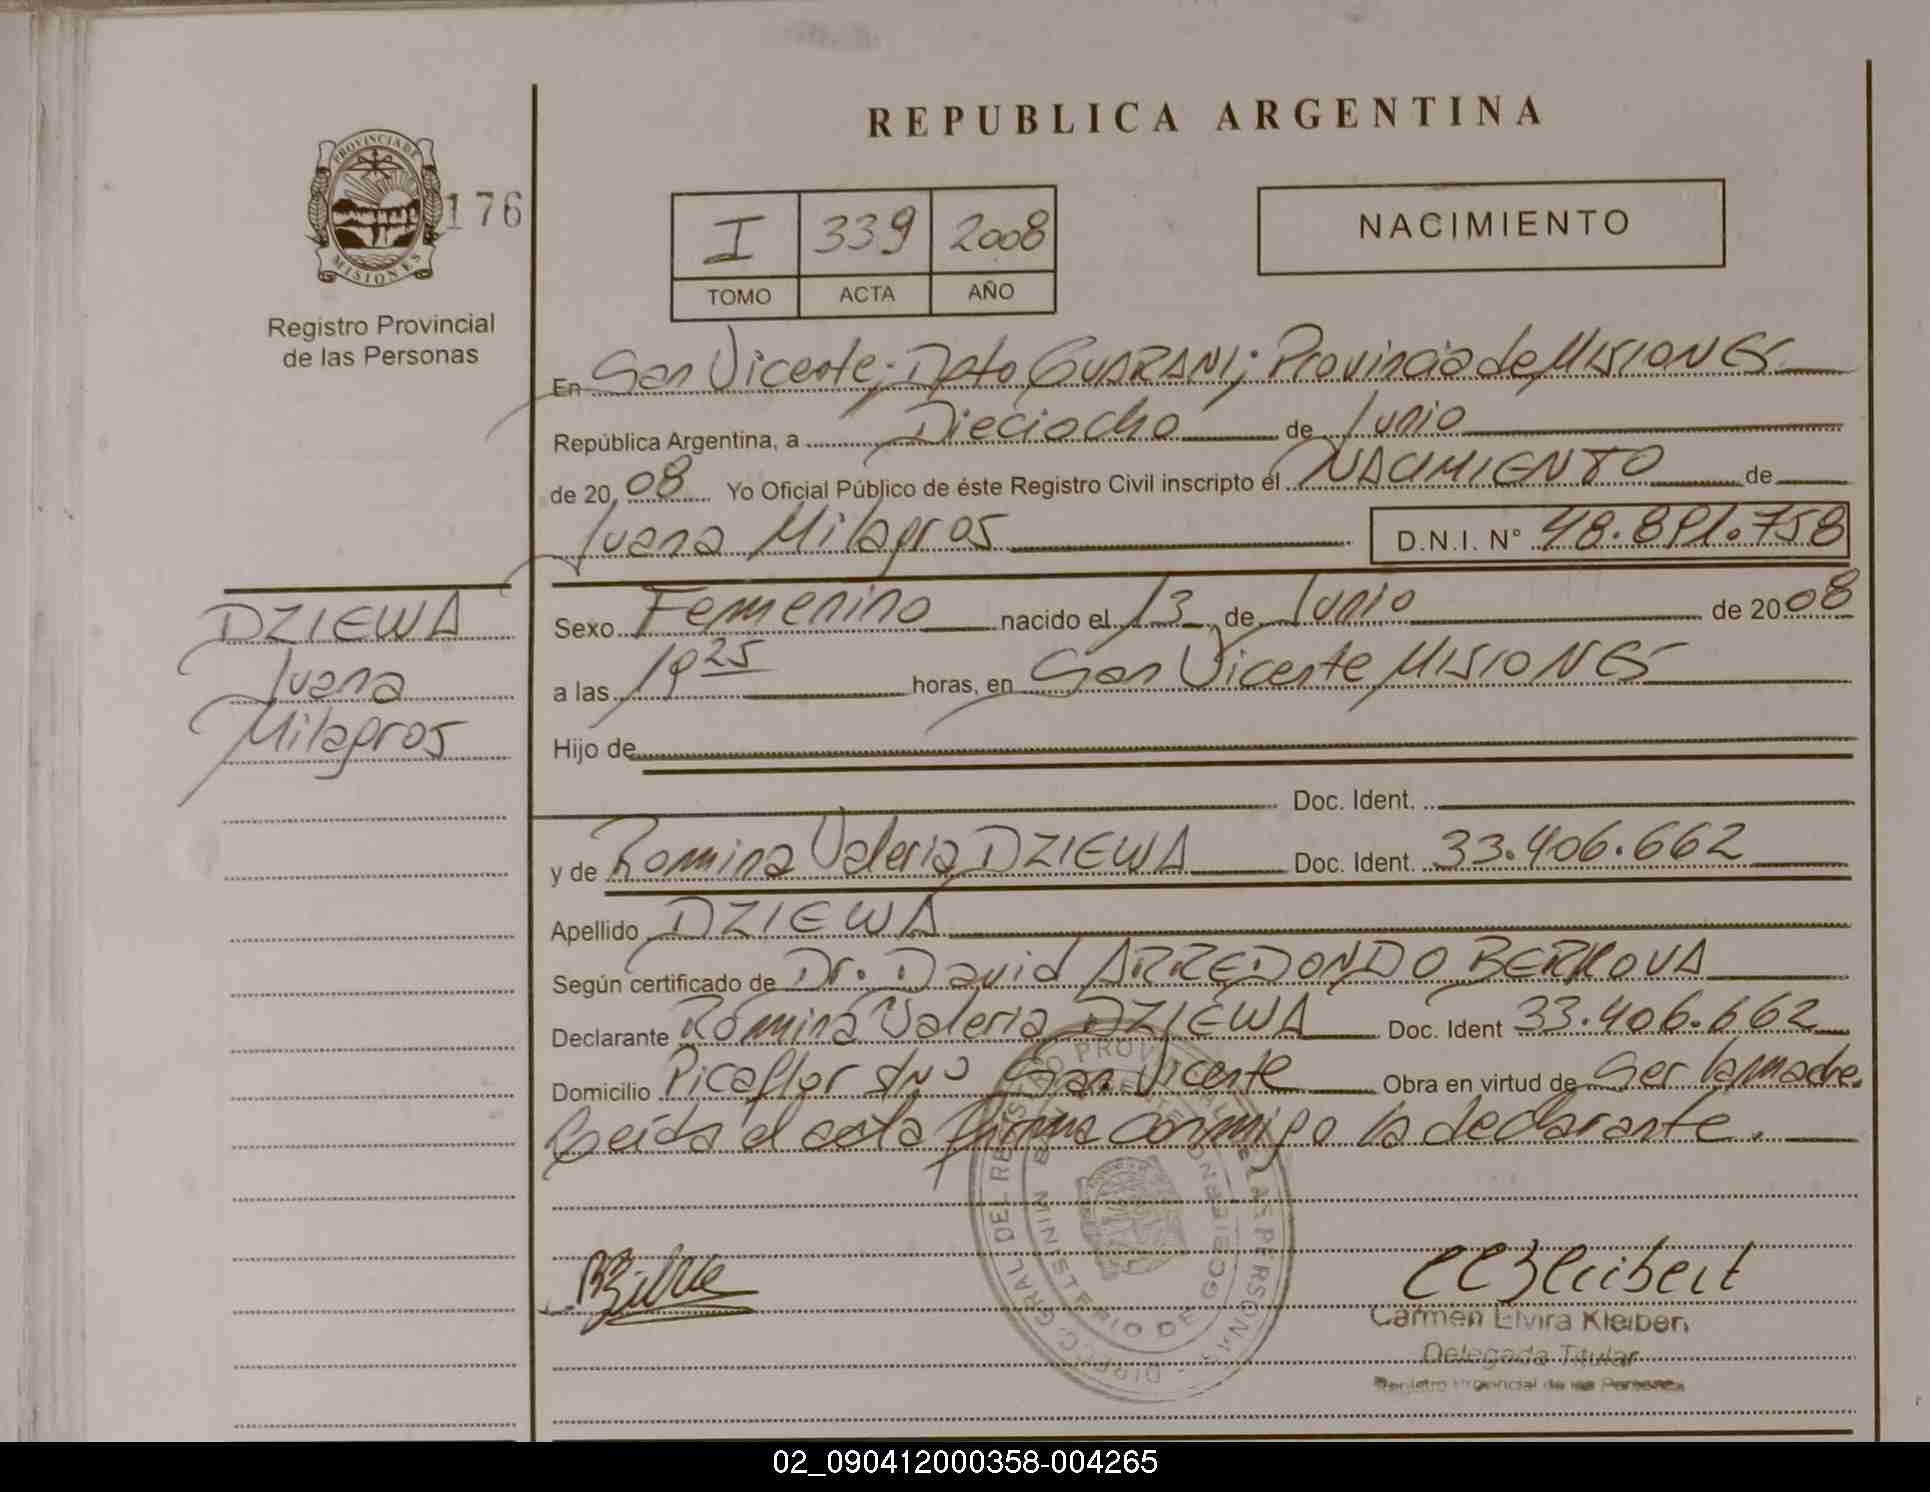 REPUBLICA ARGENTINA
PROVINCIA DE
MISIONES
176
Registro Provincial
de las Personas
I 339 2008
TOMO ACTA AÑO
NACIMIENTO
En San Vicente; Dpto GUARANI; Provincia de MISIONES
República Argentina, a Dieciocho de Junio
de 2008 Yo Oficial Público de éste Registro Civil inscripto el NACIMIENTO de
Juana Milagros D.N.I. N° 48.891.758
DZIEWA
Juana
Milagros
Sexo Femenino nacido el 13 de Junio de 2008
a las 19 25 horas, en San Vicente MISIONES
Hijo de
Doc. Ident.
y de Romina Valeria DZIEWA Doc. Ident. 33.406.662
Apellido DZIEWA
Según certificado de Dr. David ARREDONDO
Declarante Romina Valeria DZIEWA Doc. Ident 33.406.662
Domicilio Picaflor s/nº San Vicente Obra en virtud de ser la madre.
Leída el acta firma conmigo la declarante.
Carmen Elvira Kleibert
Delegada Titular
Registro Provincial de las Personas
02_090412000358-004265